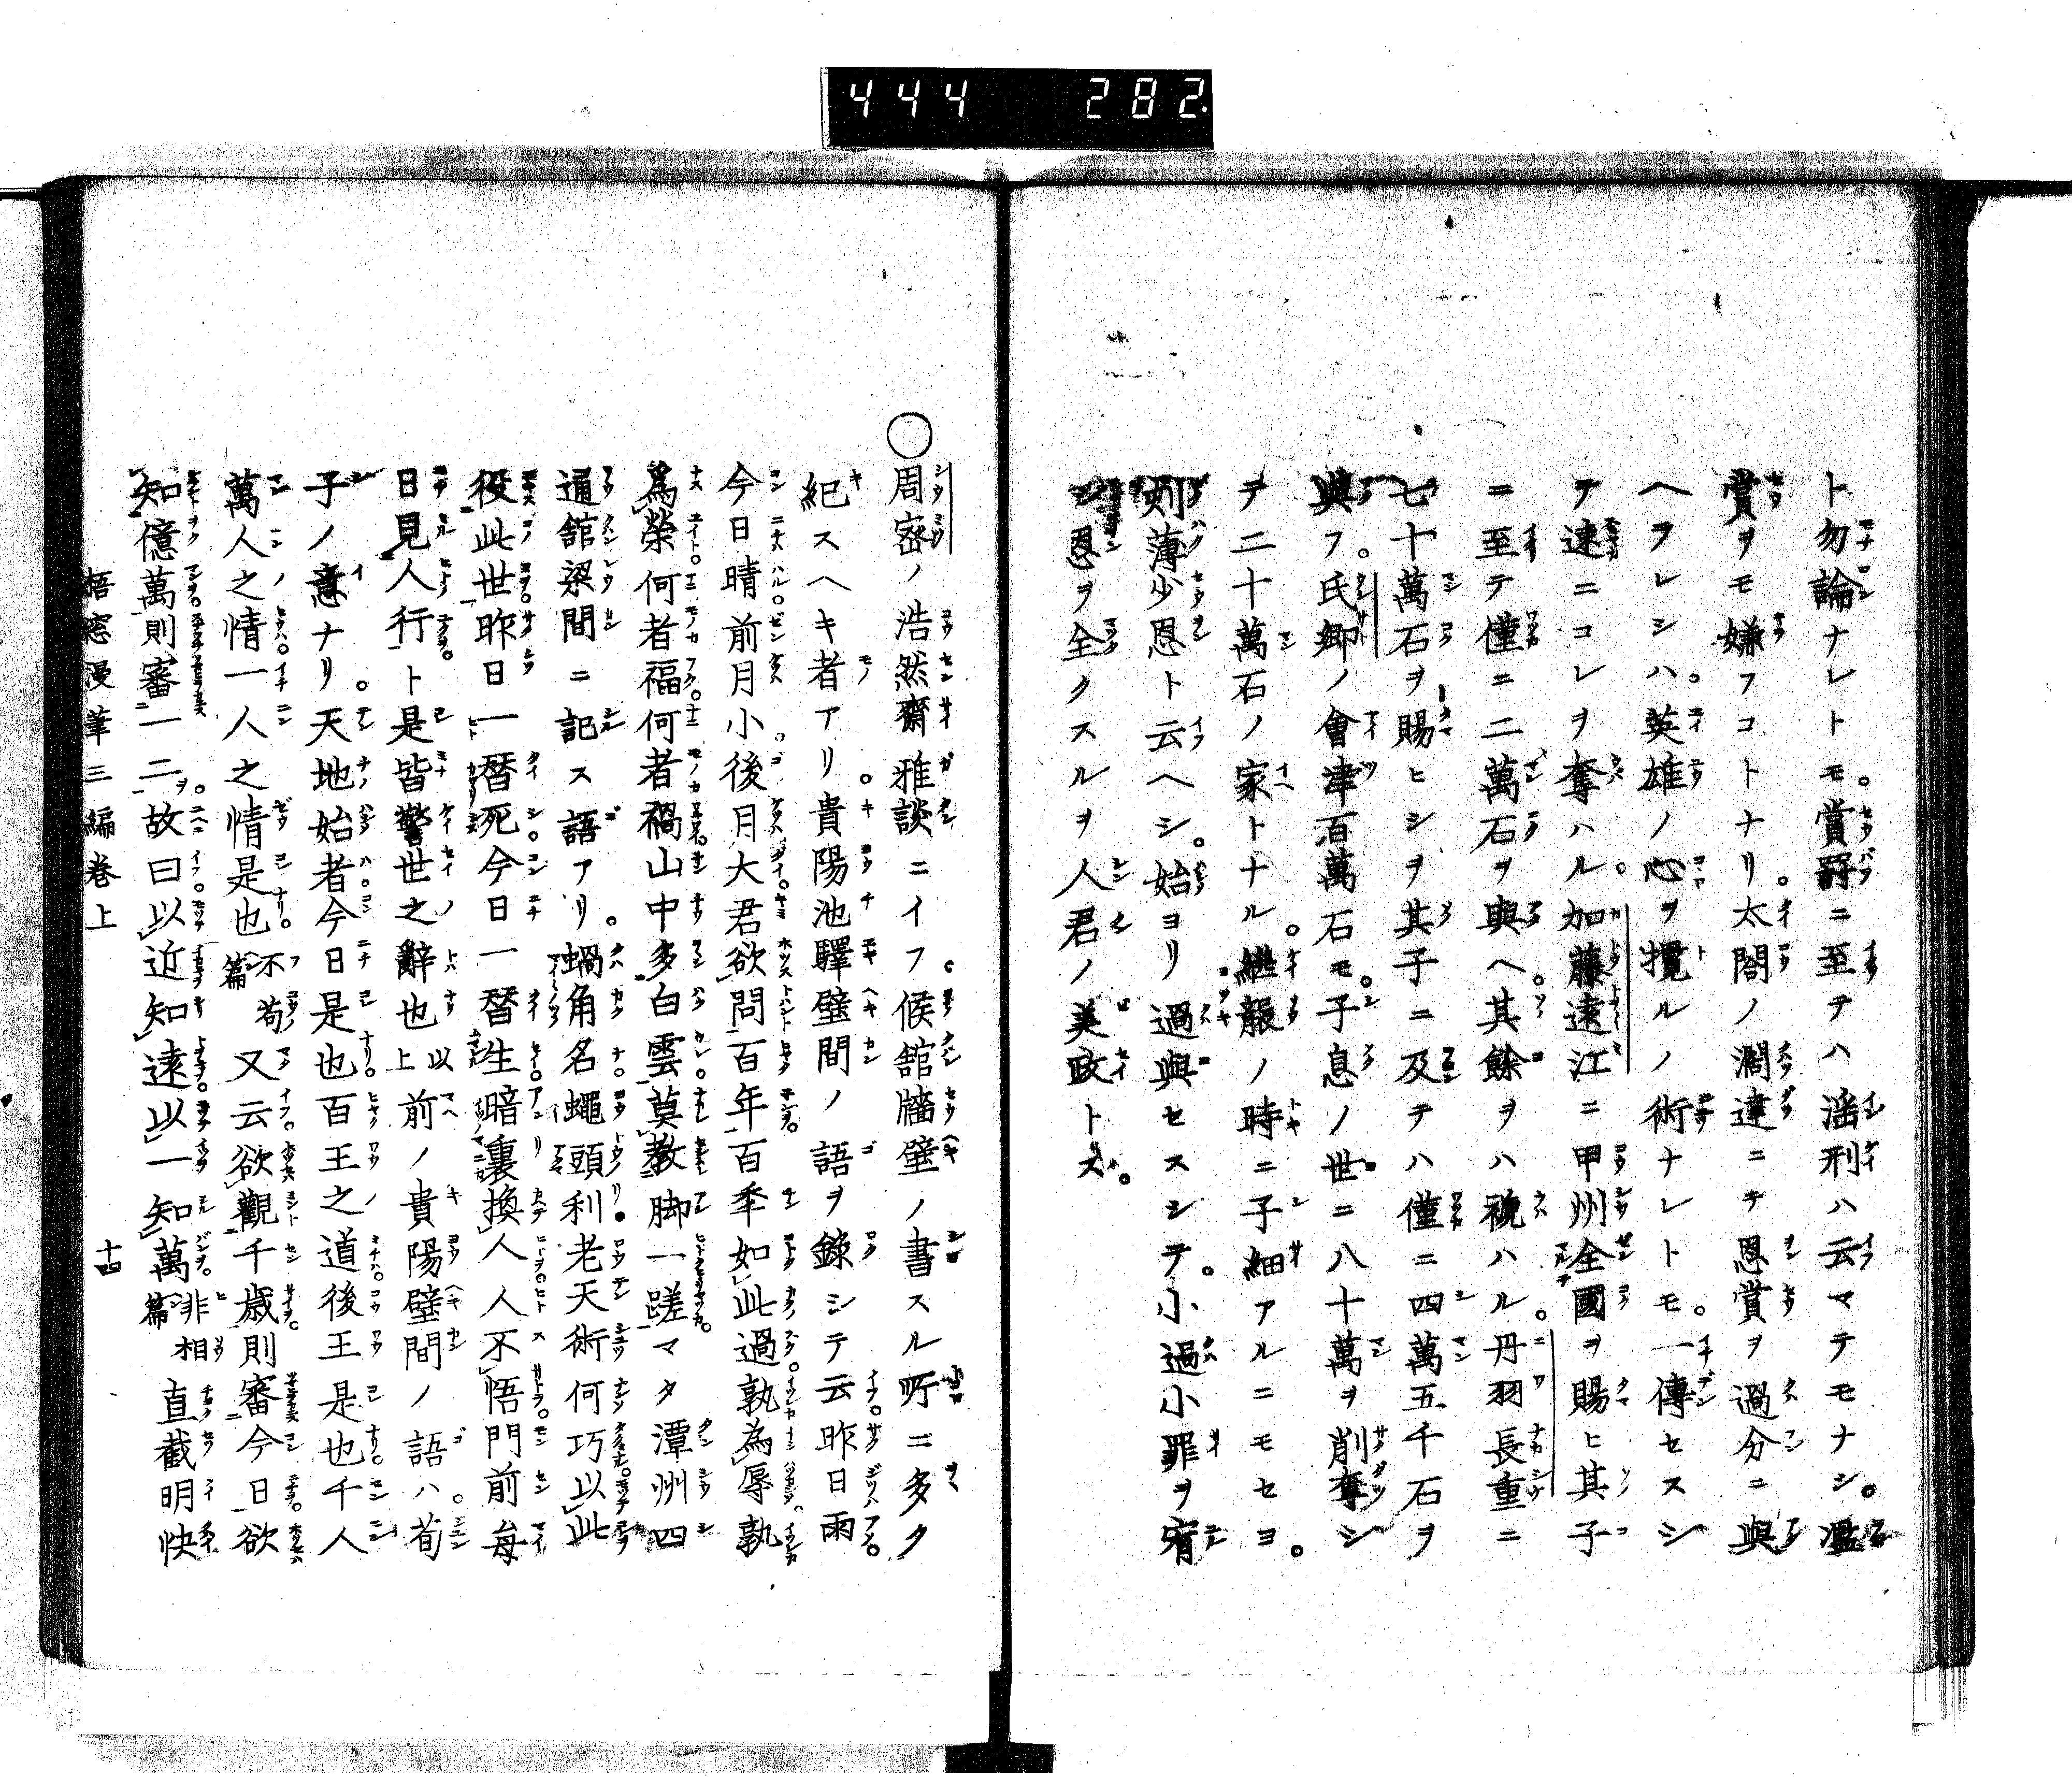 444 282
ト勿論ナレトモ。賞罸ニ至テハ淫刑ハ云マテモナシ。濫
賞ヲモ嫌フコトナリ。太閤ノ濶達ニテ恩賞ヲ過分ニ與
ヘラレシハ。英雄ノ心ヲ攬ルノ術ナレトモ。一傳セスシ
テ速ニコレヲ奪ハル。加藤遠江ニ甲州全國ヲ賜ヒ其子
ニ至テ僅ニ二萬石ヲ與ヘ。其餘ヲハ褫ハル。丹羽長重ニ
七十萬石ヲ賜ヒシヲ其子ニ及テハ僅ニ四萬五千石ヲ
與フ。氏郷ノ會津百萬石モ。子息ノ世ニ八十萬ヲ削奪シ
テ二十萬石ノ家トナル。繼襲ノ時ニ子細アルニモセヨ。
刻薄少恩ト云ヘシ。始ヨリ過與セスシテ。小過小罪ヲ宥
シ恩ヲ全クスルヲ人君ノ美政トス。
○周密ノ浩然齋雅談ニイフ。候舘牆壁ノ書スル所ニ多ク
紀スヘキ者アリ。貴陽池驛壁間ノ語ヲ錄シテ云昨日雨
今日晴前月小後月大君欲問百年百年如此過孰為辱孰
爲榮何者福何者禍山中多白雲莫教脚一蹉マタ潭州四
通舘梁間ニ記ス語アリ。蝸角名蠅頭利老天術何巧以此
役此世昨日一替死今日一替生暗裏換人人不悟門前每
日見人行ト是皆警世之辭也以上前ノ貴陽壁間ノ語ハ。荀
子ノ意ナリ。天地始者今日是也百王之道後王是也千人
萬人之情一人之情是也不苟篇又云欲觀千歳則審今日欲
知億萬則審一二。故曰以近知遠以一知萬非相篇直截明快
梧窓漫筆三編卷上 十四